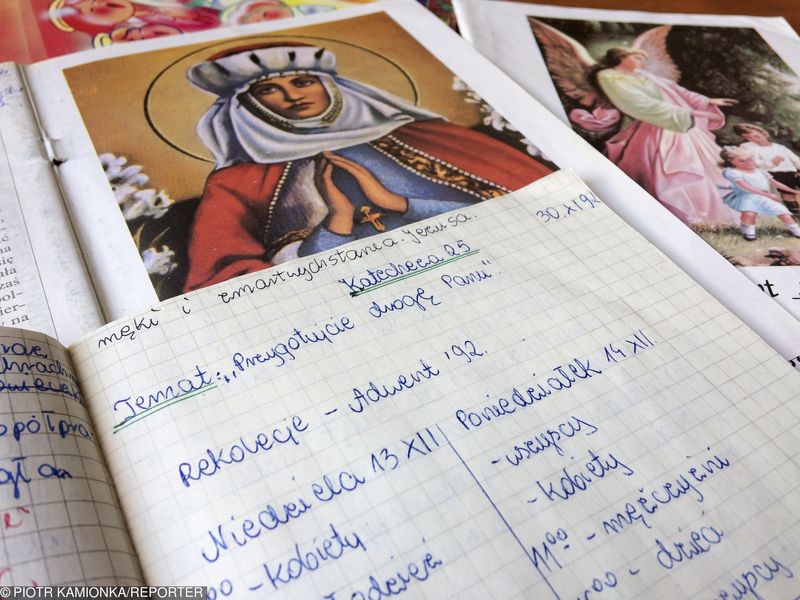 męki i zmartwychstania Jezusa. 30.XI 92
Katecheza 25
Temat: „Przygotujcie drogę Panu".
Rekolekcje - Adwent '92.
Niedziela 13 XII
00 - kobiety
Poniedziałek 14 XII.
- wszyscy
- kobiety
11⁰⁰ - mężczyźni
00 - dzieci
wszyscy
się
ała
zaś
pol-
ier-
y na
ółpra
© PIOTR KAMIONKA/REPORTER